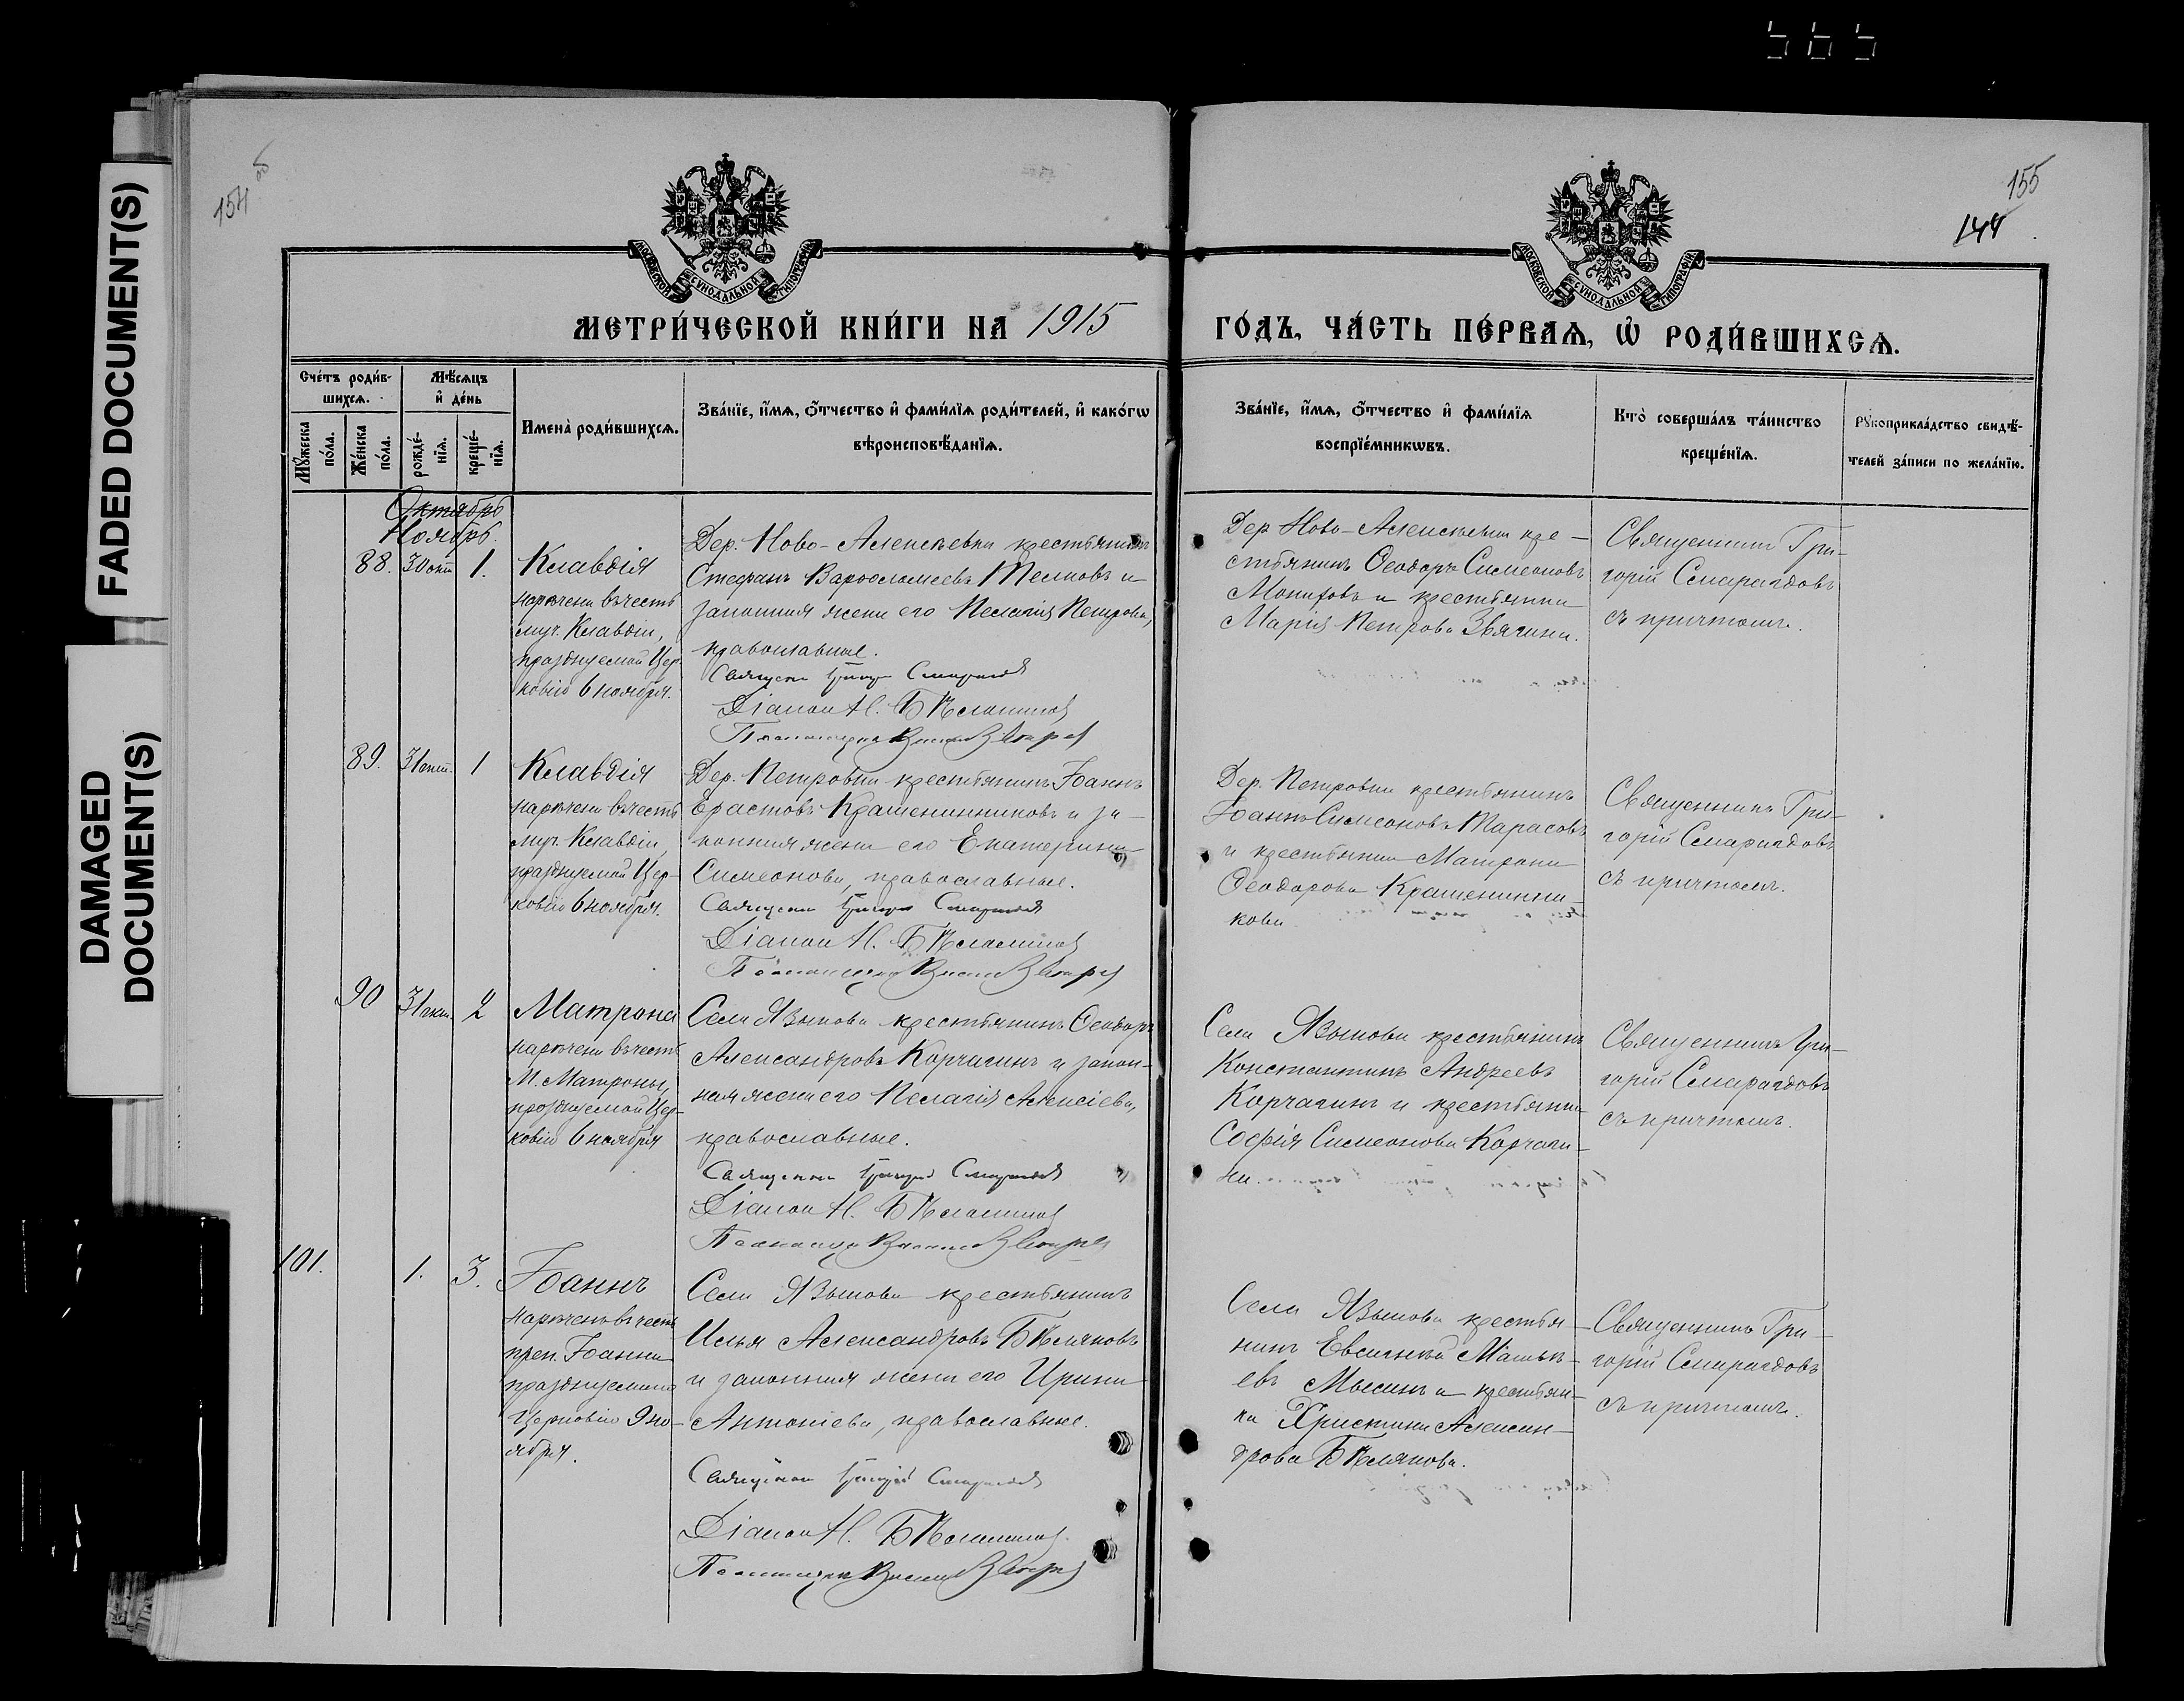 565
FADED DOCUMENT(S)
DAMAGED
DOCUMENT(S)
154 об
155
144
МОСКОВСКОЙ СѴНОДАЛЬНОЙ ТИПОГРАФІИ
МОСКОВСКОЙ СѴНОДАЛЬНОЙ ТИПОГРАФІИ
МЕТРИ́ЧЕСКОЙ КНИ́ГИ НА 1915
ГО́ДЪ, ЧА́СТЬ ПЕ́РВАѦ, Ѡ҆ РОДИ́ВШИХСѦ.
Сче́тъ роди́в-
шихсѧ.
Мѣ́сѧцъ
и҆ де́нь
Мꙋ́жеска
по́ла.
Же́нска
по́ла.
рожде́-
нїѧ.
креще́-
нїѧ.
Имена̀ роди́вшихсѧ.
Зва́нїе, и҆́мѧ, ѻ҆́тчество и҆ фами́лїѧ роди́телей, и҆ како́гѡ
вѣроисповѣ́данїѧ.
Зва́нїе, и҆́мѧ, ѻ҆́тчество и҆ фами́лїѧ
воспрїе́мникѡвъ.
Кто̀ соверша́лъ та́инство
креще́нїѧ.
Рꙋкоприкла́дство свидѣ́-
телей за́писи по жела́нїю.
Октябрь
Ноябрь.
88. 30 окт 1.
Клавдія
наречена въ честь
муч. Клавдіи,
празднуемой Цер-
ковію 6 ноября.
Дер. Ново-Алексѣевки крестьянинъ
Стефанъ Варѳоломеевъ и
законная жена его Пелагія Петрова,
православные.
Священникъ Григорій Смарагдовъ
Діаконъ Н.
Псаломщикъ
Дер Ново-Алексѣевки кре-
стьянинъ Ѳеодоръ Симеоновъ
и крестьянка
Марія Петрова Звягина.
Священникъ Гри-
горій Смарагдовъ
съ причтомъ.
89. 31 окт. 1
Клавдія
наречена въ честь
муч. Клавдіи,
празднуемой Цер-
ковію 6 ноября.
Дер. Петровки крестьянинъ Іоаннъ
Ерастовъ Крашенинниковъ и за-
конная жена его Екатерина
Симеонова, православные.
Священникъ Григорій Смарагдовъ
Діаконъ Н.
Псаломщикъ
Дер. Петровки крестьянинъ
Іоаннъ Симеоновъ Тарасовъ
и крестьянка Матрона
Ѳеодорова Крашенинни-
кова
Священникъ Гри-
горій Смарагдовъ
съ причтомъ.
90 31 окт. 2
Матрона
наречена въ честь
М. Матроны,
празднуемой Цер-
ковію 6 ноября
Села Языкова крестьянинъ Ѳеодоръ
Александровъ Корчагинъ и закон-
ная жена его Пелагія Алексіева,
православные.
Священникъ Григорій Смарагдовъ
Діаконъ Н.
Псаломщикъ
Села Языкова крестьянинъ
Константинъ Андреевъ
Корчагинъ и крестьянка
Софія Симеонова Корчаги-
на.
Священникъ Гри-
горій Смарагдовъ
съ причтомъ.
101. 1. 3.
Іоаннъ
нареченъ въ честь
преп. Іоанна
празднуемаго
Церковію 9 но-
ября.
Села Языкова крестьянинъ
Илья Александровъ Бѣляковъ
и законная жена его Ирина
Антоніева, православные.
Священникъ Григорій Смарагдовъ
Діаконъ Н.
Псаломщикъ
Села Языкова крестья-
нинъ
евъ и крестьян-
ка Христина Алексан-
дрова Бѣлякова.
Священникъ Гри-
горій Смарагдовъ
съ причтомъ.